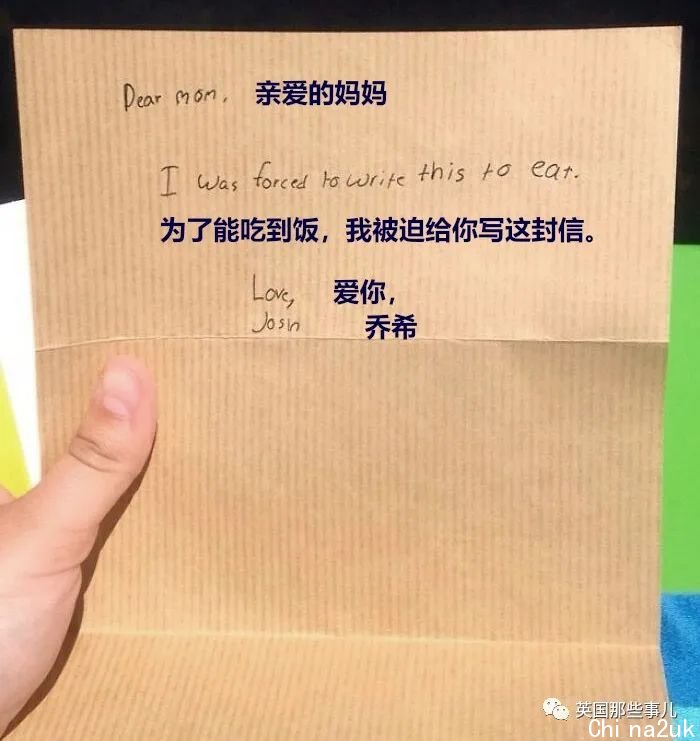 Dear mom, 亲爱的妈妈
I was forced to write this to eat.
为了能吃到饭，我被迫给你写这封信。
Love, 爱你，
Josh 乔希
英国那些事儿
Chi na2uk